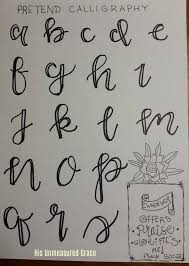 PRETEND CALLIGRAPHY
a b c d e
f g h i
j k l m
n o p
q r s
Whoever
OFFERS
Praise
GLORIFIES
ME!
Psalm 50:23
His Unmeasured Grace